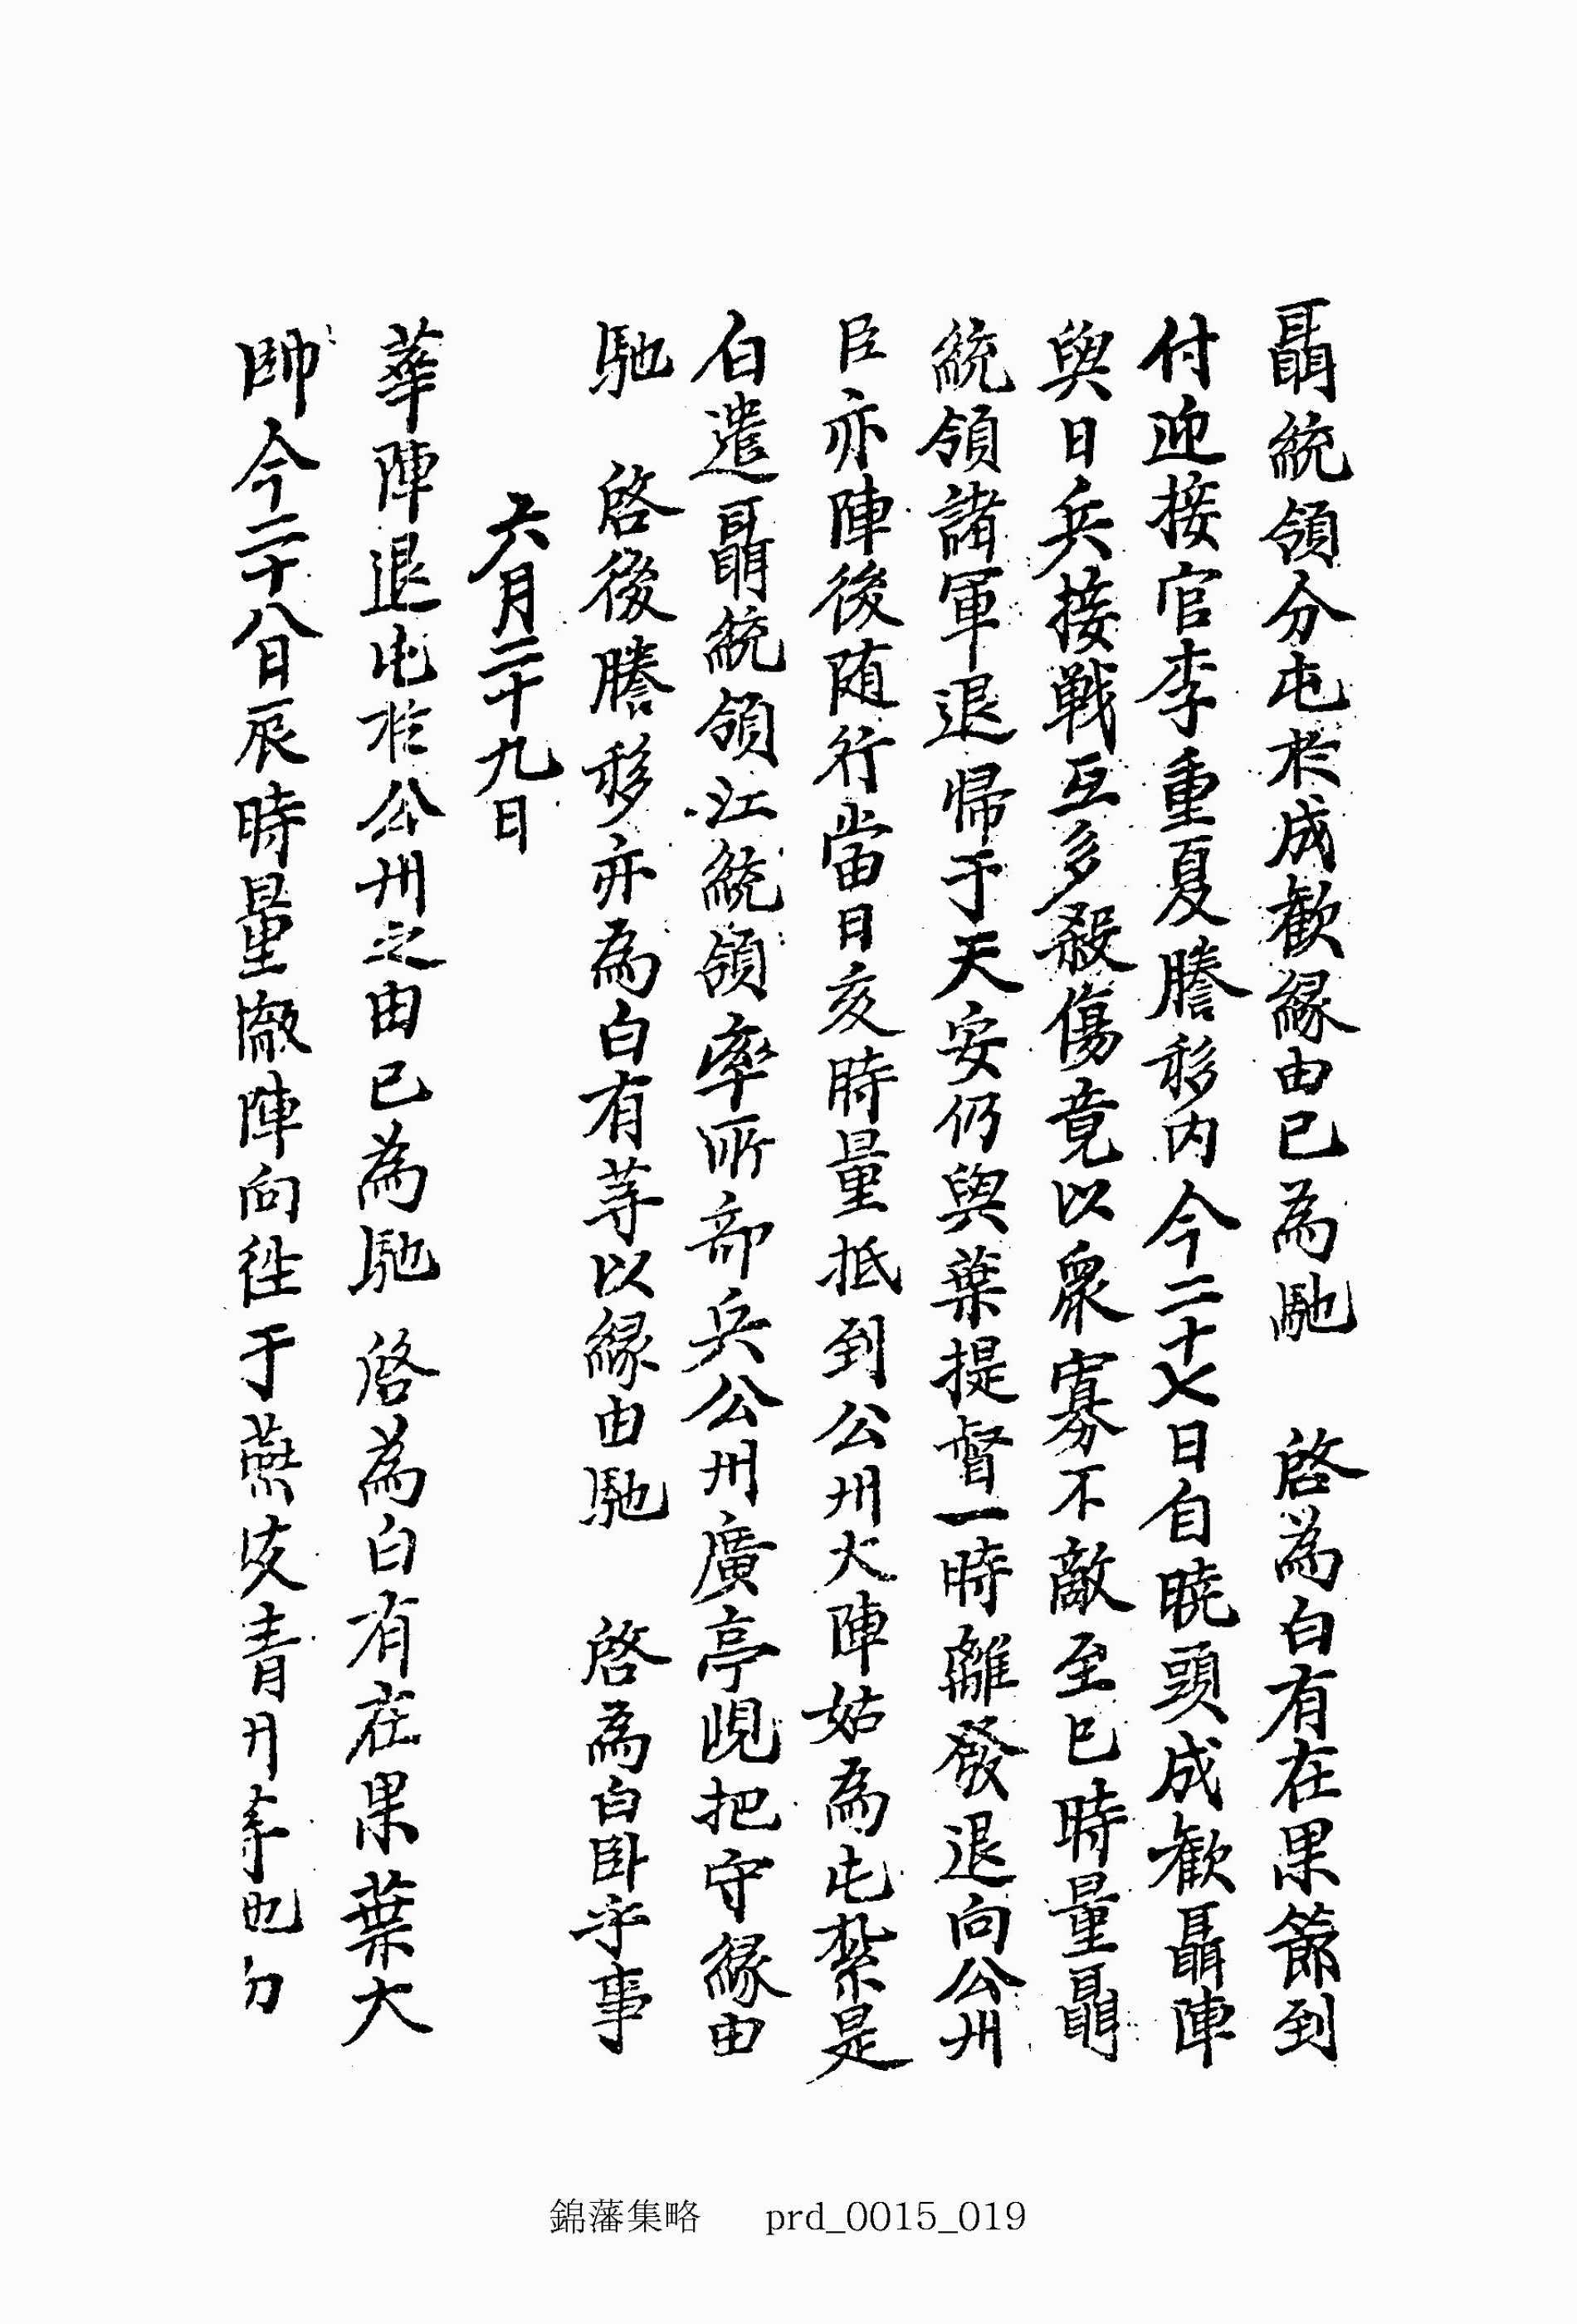 聶統領分屯於成歡緣由已為馳 啓為白有在果節到
付迎接官李重夏謄移內今二十七日自曉頭成歡聶陣
與日兵接戰互多殺傷竟以衆寡不敵至巳時量聶
統領諸軍退帰于天安仍與葉提督一時離發退向公州
臣亦陣後随行當日亥時量抵到公州大陣姑為屯紮是
白遣聶統領江統領率所部兵公州廣亭峴把守緣由
馳 啓後謄移亦為白有等以緣由馳 啓為白臥乎事
六月二十九日
華陣退屯於公州之由已為馳 啓為白有在果葉大
帥今二十八日辰時量撤陣向往于燕岐青川等地
錦藩集略 prd_0015_019